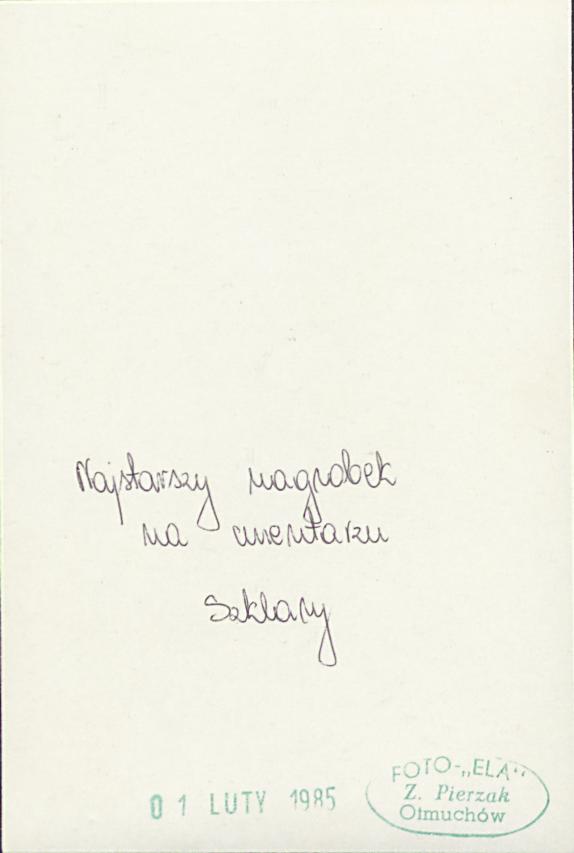 Najstarszy nagrobek
na cmentarzu
Szklary
01 LUTY 1985
FOTO-„ELA”
Z. Pierzak
Otmuchów